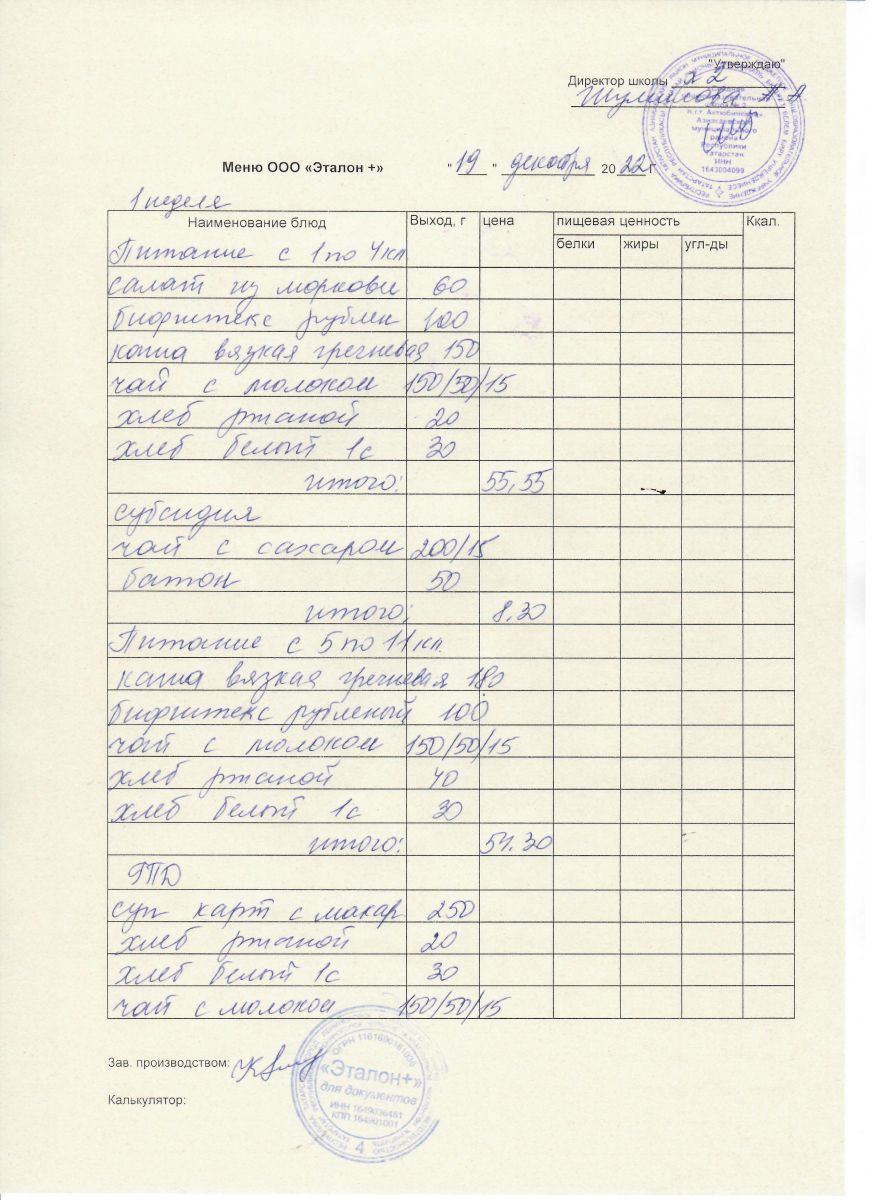 "Утверждаю"
Директор школы
Меню ООО «Эталон +» "19" декабря 2022 г
1 неделя
Наименование блюд Выход, г цена пищевая ценность Ккал.
белки жиры угл-ды
Питание с 1 по 4 кл
салат из моркови 60
бифштекс рублен 100
каша вязкая гречневая 150
чай с молоком 150/50/15
хлеб ржаной 20
хлеб белый 1с 30
итого: 55,55
субсидия
чай с сахаром 200/15
батон 50
итого: 8.30
Питание с 5 по 11 кл.
каша вязкая гречневая 180
бифштекс рубленый 100
чай с молоком 150/50/15
хлеб ржаной 40
хлеб белый 1с 30
итого: 54.30
ГПД
суп карт с макар 250
хлеб ржаной 20
хлеб белый 1с 30
чай с молоком 150/50/15
Зав. производством:
Калькулятор:
«Эталон+»
для документов
ИНН 1649036461
КПП 164901001
4
муниципального
района
Республики
Татарстан
ИНН
1643004099